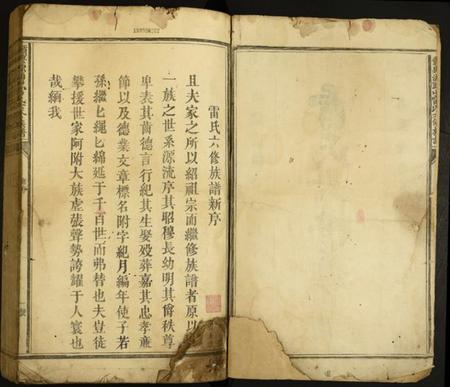 雷氏六修族譜新序
且夫家之所以紹祖宗而繼修族譜者原以
一族之世系源流序其昭穆長幼明其爵秩尊
卑表其齒德言行紀其生娶歿葬嘉其忠孝廉
節以及德業文章標名附字紀月編年使子若
孫繼匕繩匕綿延于千百世而弗替也夫豈徒
攀援世家阿附大族虛張聲勢誇耀于人寰也
哉緬我